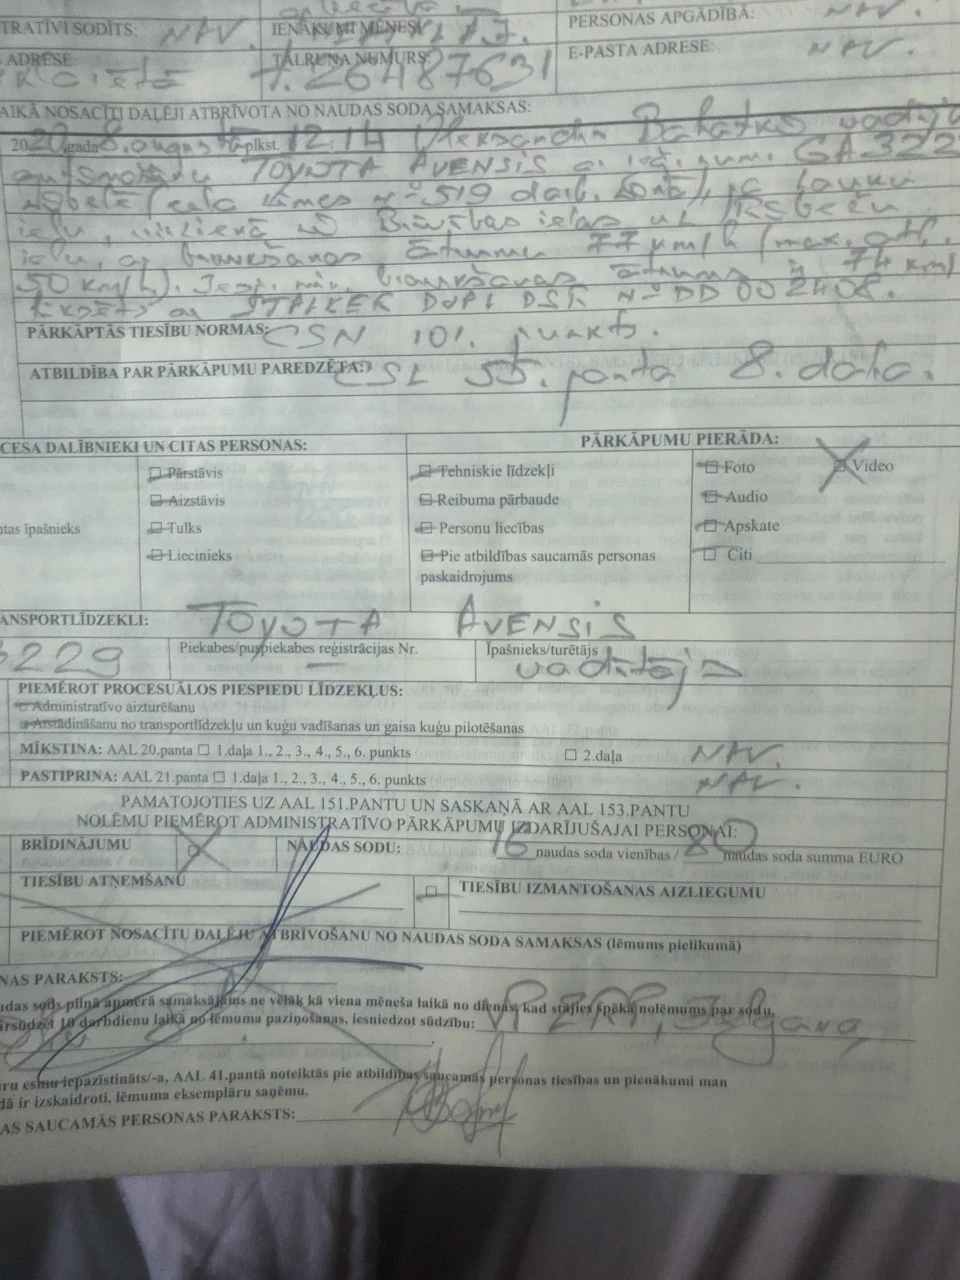 TRATĪVI SODĪTS: NAV. IENĀKUMI MĒNESĪ PERSONAS APGĀDĪBĀ: NAV.
ADRESE: TĀLRUŅA NUMURS: E-PASTA ADRESE: NAV.
T. 26487631
AIKĀ NOSACĪTI DAĻĒJI ATBRĪVOTA NO NAUDAS SODA SAMAKSAS:
2020 gada 8. augustā plkst. 12:14 vadīja
TOYOTA AVENSIS GA322
N°519
ielu, virzienā no ielas uz
ielu, ar braukšanas ātrumu 77 km/h (max. atļ.
50 km/h). braukšanas ātrums ir 74 km/
STALKER DSR N° DD 002408.
PĀRKĀPTĀS TIESĪBU NORMAS: CSN 101. punkts.
ATBILDĪBA PAR PĀRKĀPUMU PAREDZĒTA: CSL 55. panta 8. daļa.
CESA DALĪBNIEKI UN CITAS PERSONAS: PĀRKĀPUMU PIERĀDA:
Pārstāvis Tehniskie līdzekļi Foto Video
Aizstāvis Reibuma pārbaude Audio
ntas īpašnieks Tulks Personu liecības Apskate
Liecinieks Pie atbildības saucamās personas Citi
paskaidrojums
ANSPORTLĪDZEKLI: TOYOTA AVENSIS
3229 Piekabes/puspiekabes reģistrācijas Nr. Īpašnieks/turētājs
vadītājs
PIEMĒROT PROCESUĀLOS PIESPIEDU LĪDZEKĻUS:
Administratīvo aizturēšanu
Atstādināšanu no transportlīdzekļu un kuģu vadīšanas un gaisa kuģu pilotēšanas
MĪKSTINA: AAL 20.panta 1.daļa 1., 2., 3., 4., 5., 6. punkts 2.daļa NAV.
PASTIPRINA: AAL 21.panta 1.daļa 1., 2., 3., 4., 5., 6. punkts NAV.
PAMATOJOTIES UZ AAL 151.PANTU UN SASKAŅĀ AR AAL 153.PANTU
NOLĒMU PIEMĒROT ADMINISTRATĪVO PĀRKĀPUMU IZDARĪJUŠAJAI PERSONAI:
BRĪDINĀJUMU NAUDAS SODU: 16 naudas soda vienības / 80 naudas soda summa EURO
TIESĪBU ATŅEMŠANU TIESĪBU IZMANTOŠANAS AIZLIEGUMU
PIEMĒROT NOSACĪTU DAĻĒJU ATBRĪVOŠANU NO NAUDAS SODA SAMAKSAS (lēmums pielikumā)
NAS PARAKSTS:
udas sods pilnā apmērā samaksājams ne vēlāk kā viena mēneša laikā no dienas, kad stājies spēkā nolēmums par sodu,
ārsūdzēt 10 darbdienu laikā no lēmuma paziņošanas, iesniedzot sūdzību:
aru esmu iepazīstināts/-a, AAL 41.pantā noteiktās pie atbildības saucamās personas tiesības un pienākumi man
dā ir izskaidroti, lēmuma eksemplāru saņēmu.
AS SAUCAMĀS PERSONAS PARAKSTS: